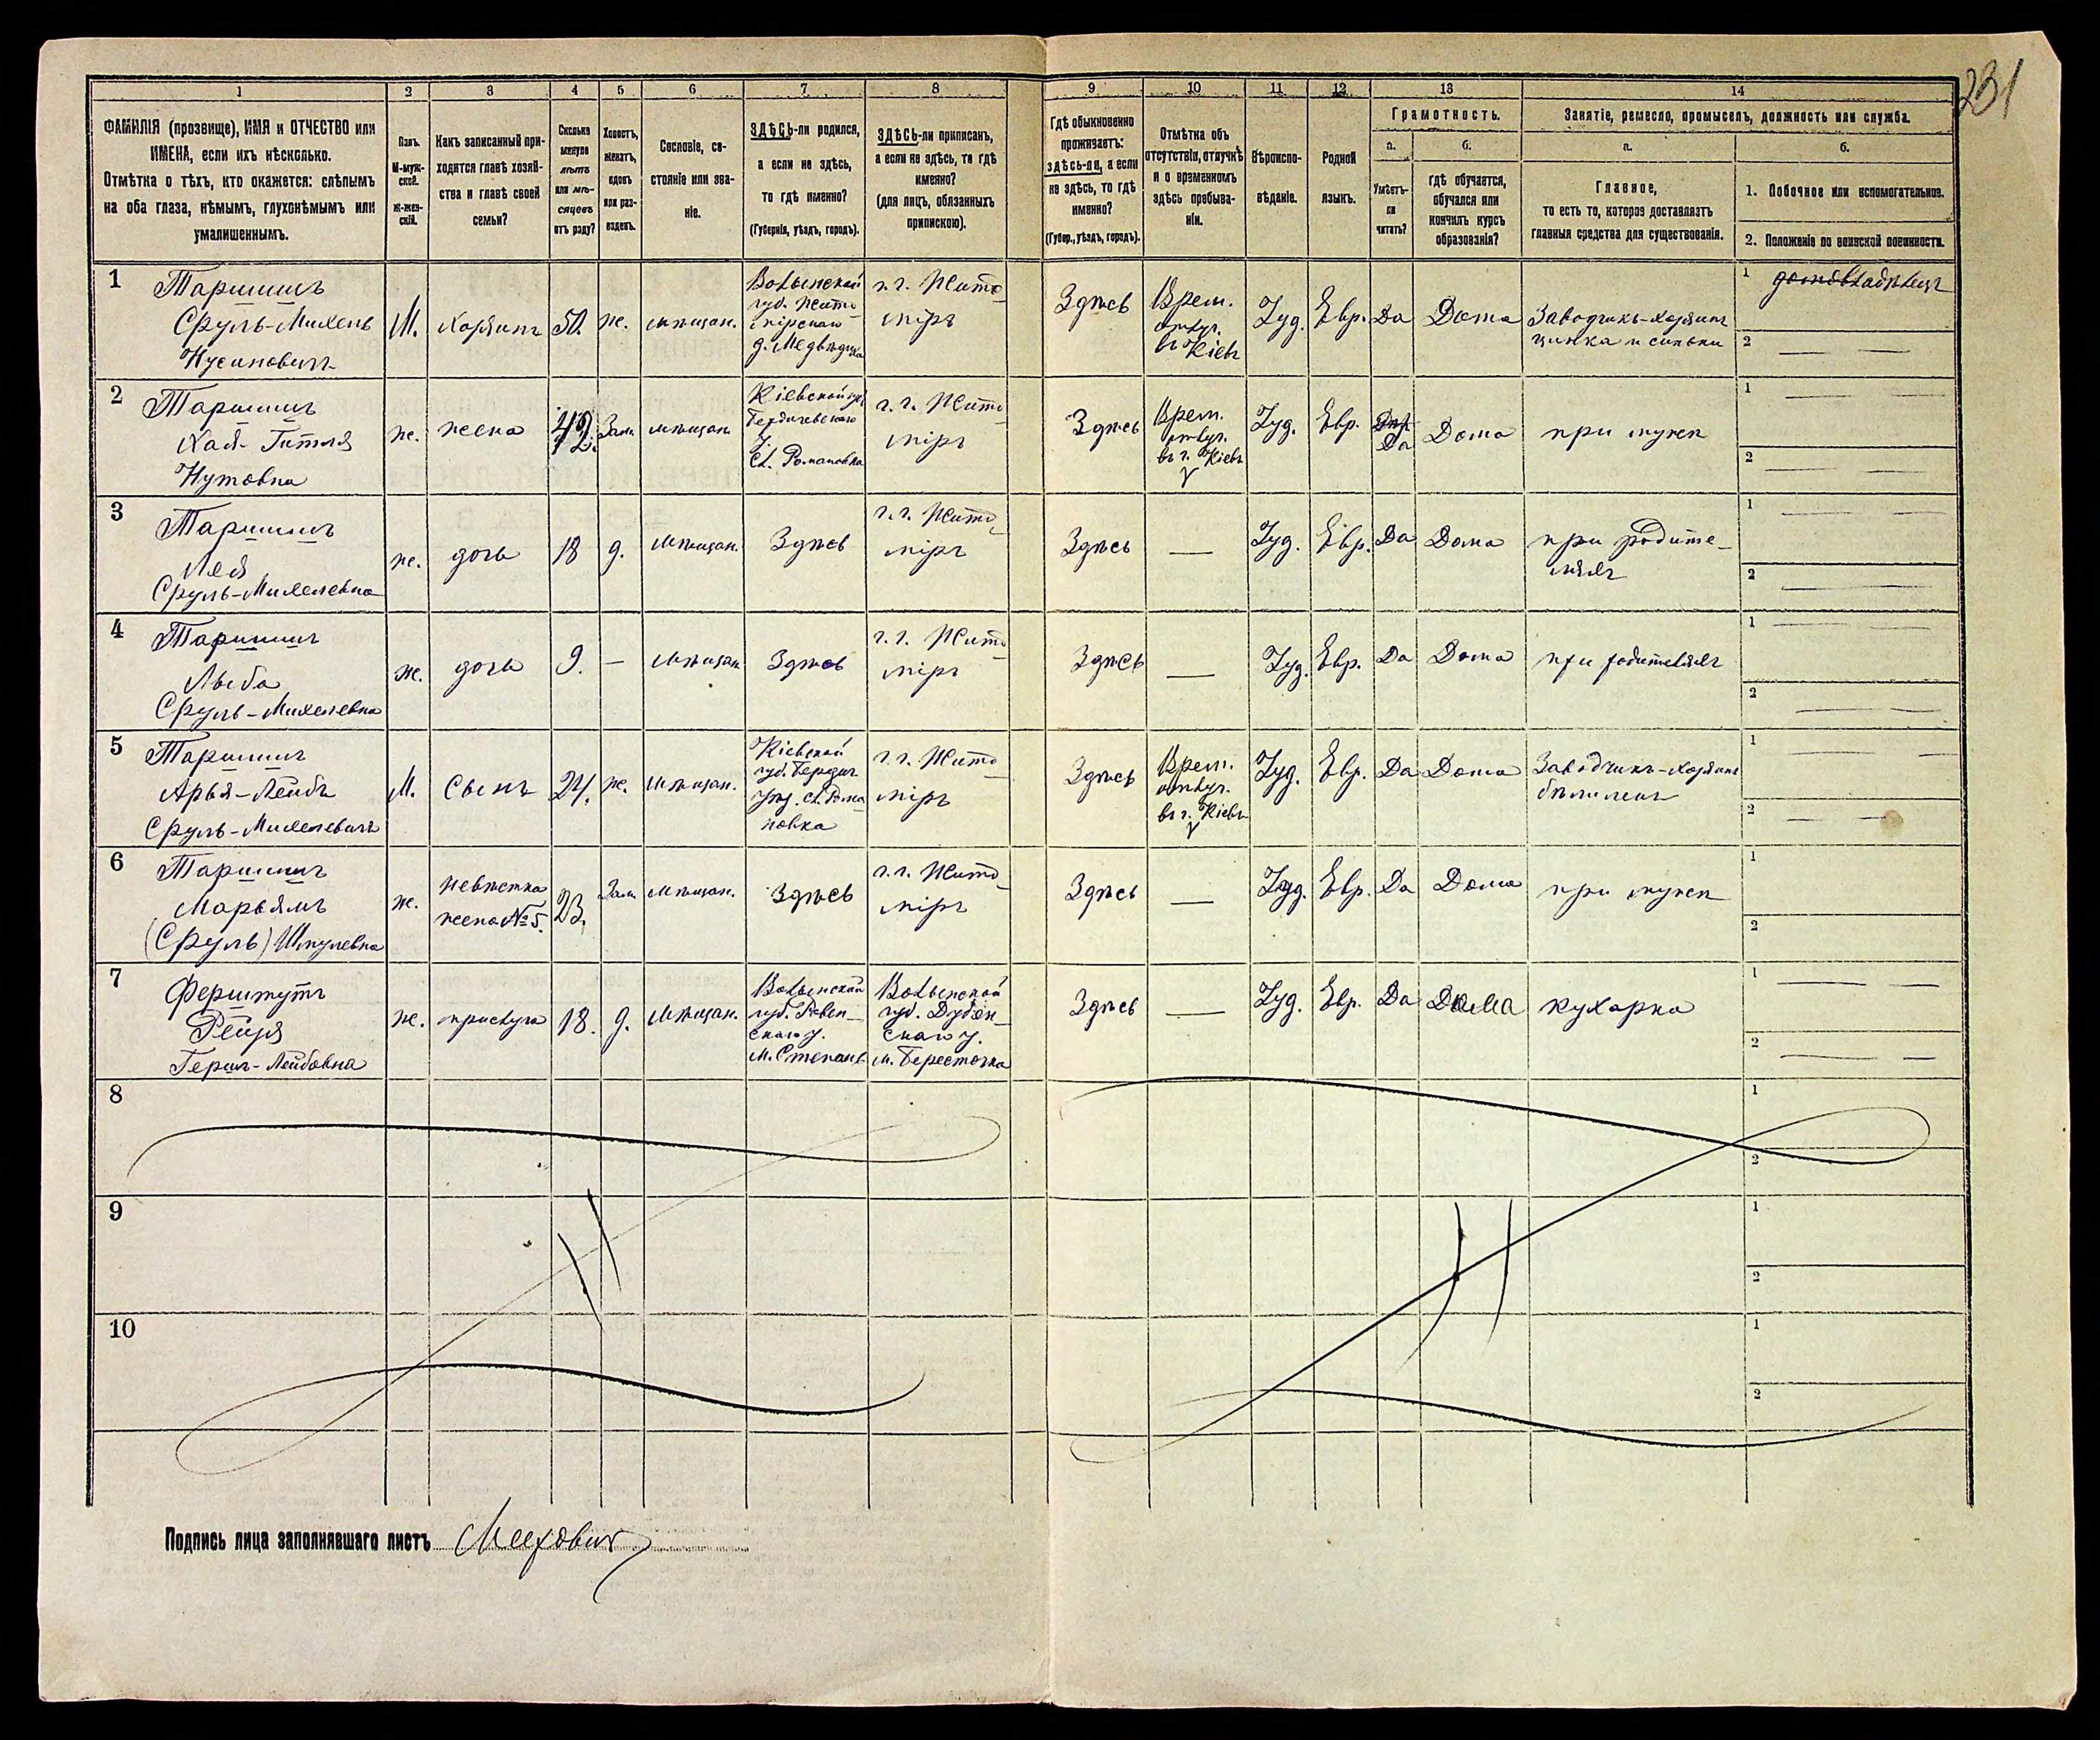 231
1 2 3 4 5 6 7 8 9 10 11 12 13 14
ФАМИЛІЯ (прозвище), ИМЯ и ОТЧЕСТВО или
ИМЕНА, если ихъ нѣсколько.
Отмѣтка о тѣхъ, кто окажется: слѣпымъ
на оба глаза, нѣмымъ, глухонѣмымъ или
умалишеннымъ.
Полъ.
М-муж-
ской.
Ж-жен-
скій.
Какъ записанный при-
ходится главѣ хозяй-
ства и главѣ своей
семьи?
Сколько
минуло
лѣтъ
или мѣ-
сяцевъ
отъ роду?
Холостъ,
женатъ,
вдовъ
или раз-
веденъ.
Сословіе, со-
стояніе или зва-
ніе.
ЗДѢСЬ-ли родился,
а если не здѣсь,
то гдѣ именно?
(Губернія, уѣздъ, городъ).
ЗДѢСЬ-ли приписанъ,
а если не здѣсь, то гдѣ
именно?
(для лицъ, обязанныхъ
припискою).
Гдѣ обыкновенно
проживаетъ:
здѣсь-ли, а если
не здѣсь, то гдѣ
именно?
(Губер., уѣздъ, городъ).
Отмѣтка объ
отсутствіи, отлучкѣ
и о временномъ
здѣсь пребыва-
ніи.
Вѣроиспо-
вѣданіе.
Родной
языкъ.
Грамотность.
а.
Умѣетъ-
ли
читать?
б.
гдѣ обучается,
обучался или
кончилъ курсъ
образованія?
Занятіе, ремесло, промыселъ, должность или служба.
а.
Главное,
то есть то, которое доставляетъ
главныя средства для существованія.
б.
1. Побочное или вспомогательное.
2. Положеніе по воинской повинности.
1
Таршишъ
Сруль-Михель
Нусиновичъ
М.
хозяинъ
50
ж.
мѣщан.
Волынской
губ. Жито
мірскаго
г. г. Жито
міръ
Здѣсь
Врем.
отлуч.
въ Кіевъ
Іуд.
Евр.
Да
Дома
Заводчикъ-хозяинъ
1 домовладѣлецъ
2 — —
2
Таршишъ
Хая-Гитля
Нутовна
ж.
жена
42.
Зам.
мѣщан.
Кіевской губ
Бердичевскаго
у.
с. Романовка
г. г. Жито
міръ
Здѣсь
Врем.
отлуч.
въ г. Кіевъ
Іуд.
Евр.
Да
Дома
при мужѣ
1 — —
2 — —
3
Таршишъ
Лея
Сруль-Михелевна
ж.
дочь
18
д.
мѣщан.
Здѣсь
г. г. Жито
міръ
Здѣсь
—
Іуд.
Евр.
Да
Дома
при родите-
ляхъ
1 — —
2 — —
4
Таршишъ
Лыба
Сруль-Михелевна
ж.
дочь
9.
—
мѣщан
Здѣсь
г. г. Жито
міръ
Здѣсь
—
Іуд.
Евр.
Да
Дома
при родителяхъ
1 — —
2 — —
5
Таршишъ
Арья-Лейбъ
Сруль-Михелевичъ
М.
Сынъ
24.
ж.
мѣщан.
Кіевской
губ. Бердич
уѣз. с. Рома
новка
г. г. Жито
міръ
Здѣсь
Врем.
отлуч.
въ г. Кіевъ
Іуд.
Евр.
Да
Дома
Заводчикъ-хозяинъ
1 — —
2 — —
6
Таршишъ
Марьямъ
(Сруль) Шмулевна
ж.
невѣстка
жена № 5.
23.
Зам.
мѣщан.
Здѣсь
г. г. Жито
міръ
Здѣсь
—
Іуд.
Евр.
Да
Дома
при мужѣ
1
2
7
Ферштутъ
Рейзя
Герш-Лейбовна
ж.
прислуга
18.
д.
мѣщан.
Волынской
губ. Ровен-
скаго у.
м. Степань
Волынской
губ. Дубен-
скаго у.
м. Берестечка
Здѣсь
—
Іуд.
Евр.
Да
Дома
кухарка
1 — —
2 — —
8
1
2
9
1
2
10
1
2
Подпись лица заполнявшаго листъ